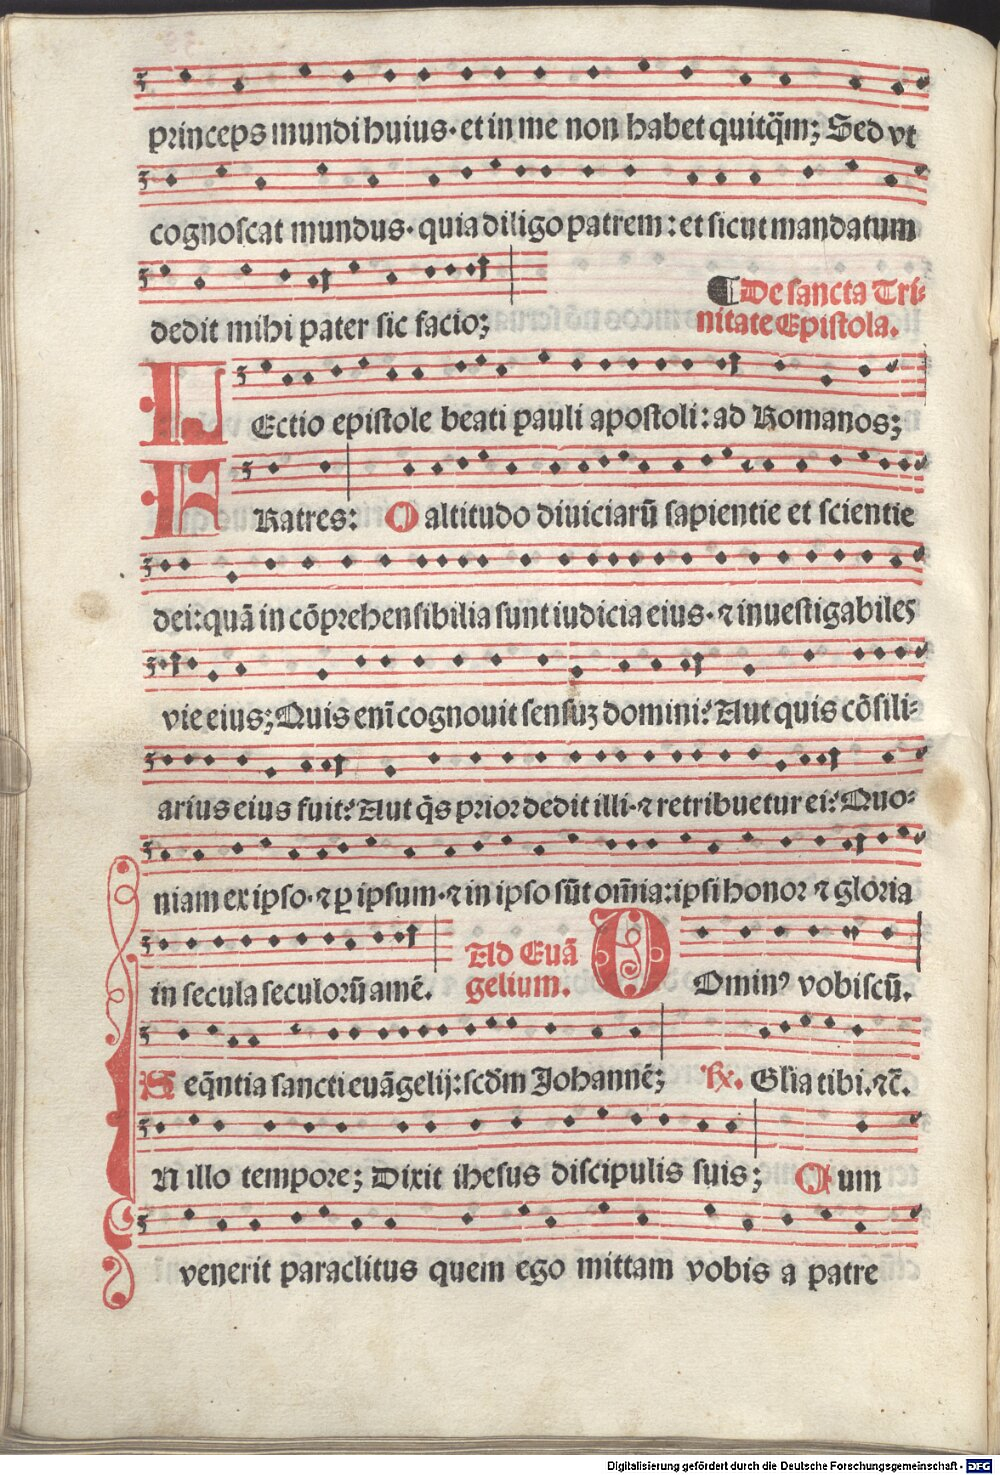 princeps mundi huius· et in me non habet quitq̃m; Sed vt
cognoscat mundus· quia diligo patrem: et sicut mandatum
dedit mihi pater sic facio;
¶ De sancta Tri-
nitate Epistola.
LEctio epistole beati pauli apostoli: ad Romanos;
FRatres: O altitudo diuiciarũ sapientie et scientie
dei: quã in cõprehensibilia sunt iudicia eius· ⁊ inuestigabiles
vie eius; Quis enĩ cognouit sensuȝ domini? Aut quis cõsili-
arius eius fuit? Aut q̃s prior dedit illi· ⁊ retribuetur ei? Quo-
niam ex ipso· ⁊ ꝑ ipsum· ⁊ in ipso sũt om̃ia: ipsi honor ⁊ gloria
in secula seculorũ amẽ.
Ad Euã
gelium.
DOminꝰ vobiscũ.
Seq̃ntia sancti euãgelij: scd̃m Johannẽ; ℟. Gl̃ia tibi. ⁊c̃.
IN illo tempore; Dixit ihesus discipulis suis; Cum
venerit paraclitus quem ego mittam vobis a patre
Digitalisierung gefördert durch die Deutsche Forschungsgemeinschaft - DFG